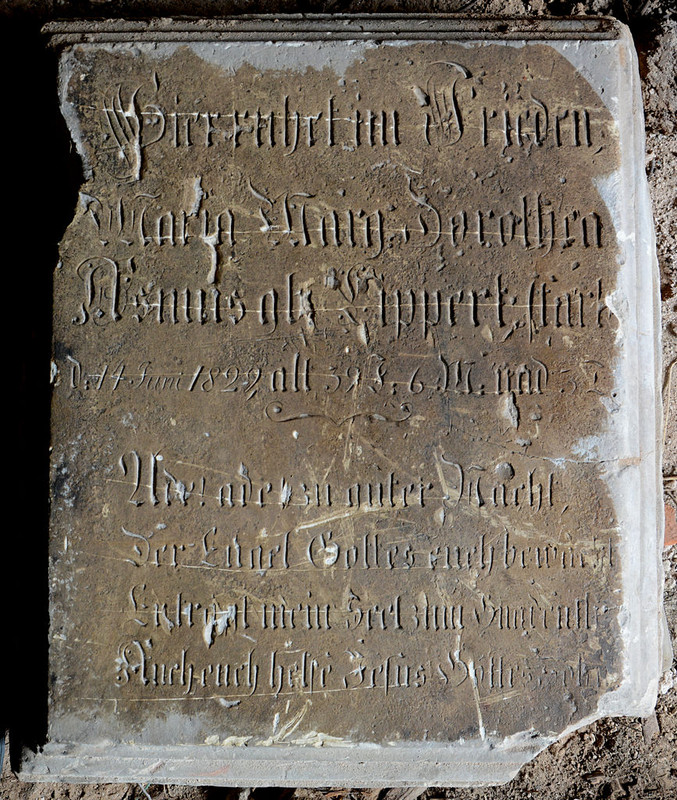 Hier ruhet im Frieden,
Maria Marg. Dorothea
Asmus als Lippert, starb
d. 14 Juni 1822, alt 39 J. 6 M. und 3 T
Ade! ade zu guter Nacht,
Der Engel Gottes euch bewacht
mein Seel zum
Auch euch helfe Jesus Gottes Sohn